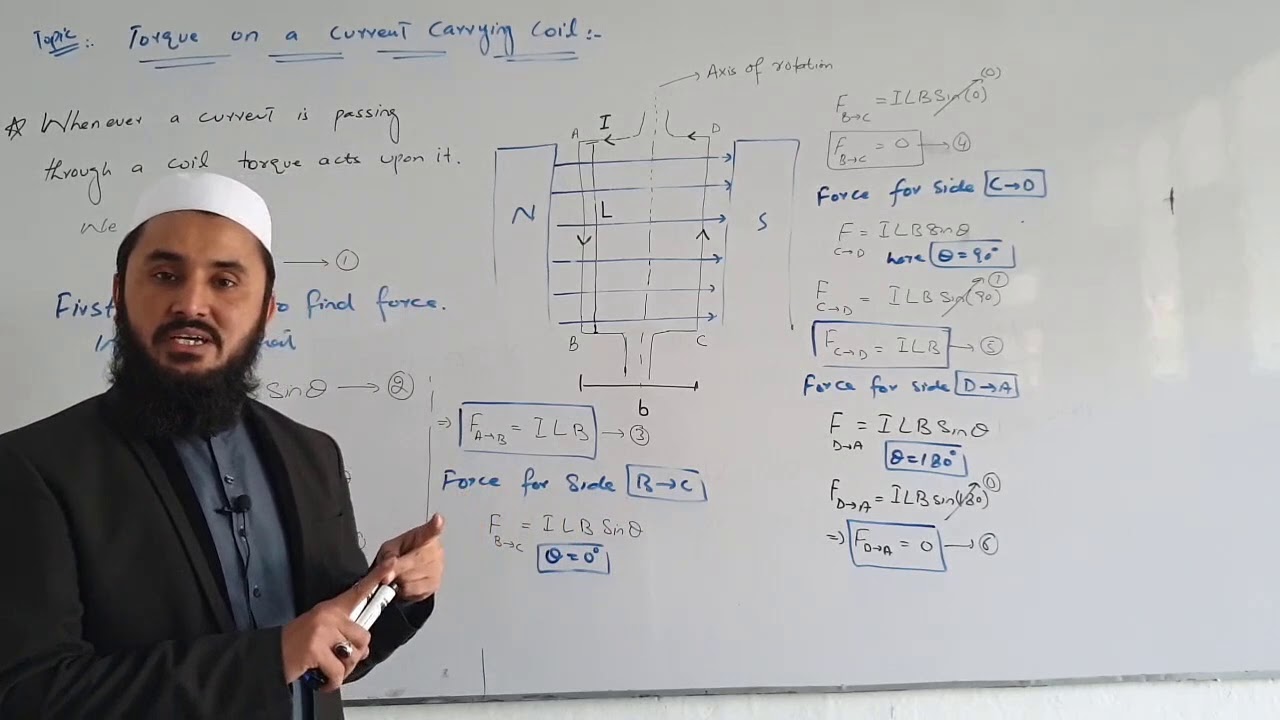 Topic:. Torque on a current carrying coil:-
☆ Whenever a current is passing
through a coil torque acts upon it.
We
→ ①
First to find force.
Sinθ → ②
Axis of rotation
I
A
D
N
L
S
B
C
b
⇒ F A→B = ILB → ③
Force for side B→C
F B→C = ILB Sinθ
θ = 0°
F B→C = ILB Sin(0) (0)
F B→C = 0 → ④
Force for side C→D
F C→D = ILB Sinθ
here θ = 90°
F C→D = ILB Sin(90) ①
F C→D = ILB → ⑤
Force for side D→A
F D→A = ILB Sinθ
θ = 180°
F D→A = ILB sin(180) 0
⇒ F D→A = 0 → ⑥